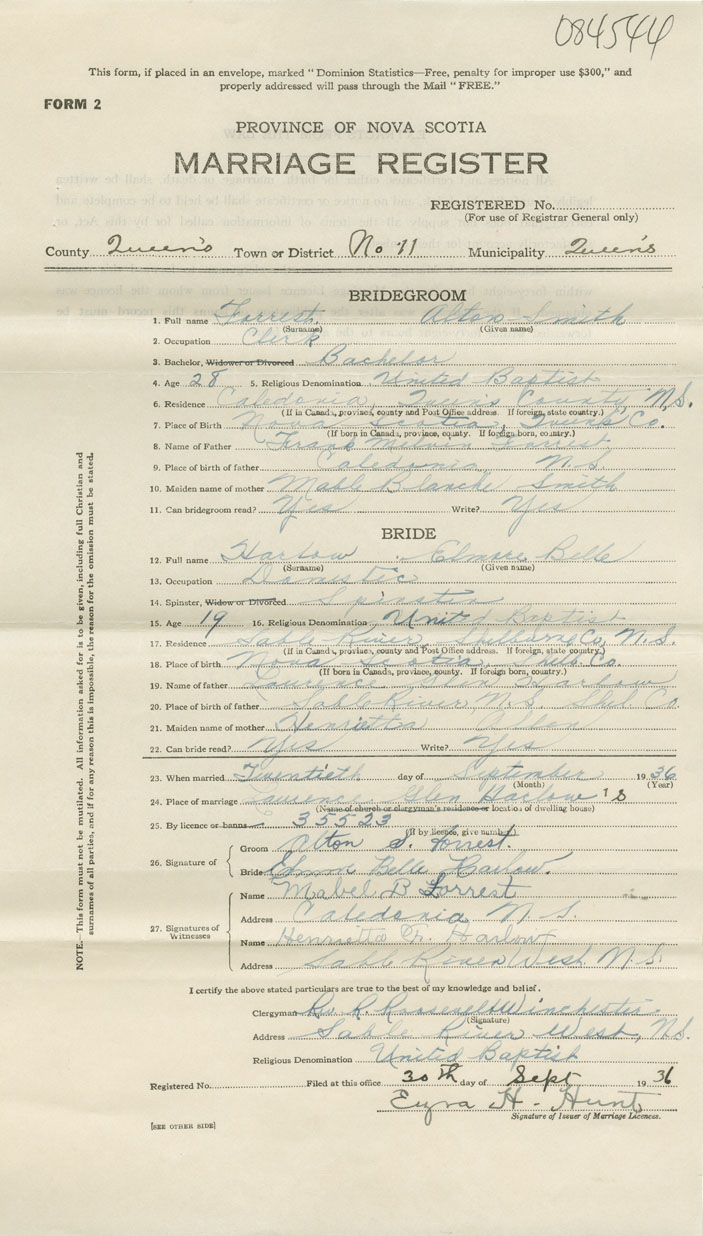 084544
This form, if placed in an envelope, marked "Dominion Statistics—Free, penalty for improper use $300," and
properly addressed will pass through the Mail "FREE."
FORM 2
PROVINCE OF NOVA SCOTIA
MARRIAGE REGISTER
REGISTERED No.
(For use of Registrar General only)
County Queen's Town or District No 11 Municipality Queen's
BRIDEGROOM
1. Full name Forrest Alton Smith
(Surname) (Given name)
2. Occupation Clerk
3. Bachelor, Widower or Divorced Bachelor
4. Age 28 5. Religious Denomination United Baptist
6. Residence Caledonia, Queens County, N.S.
(If in Canada, province, county and Post Office address. If foreign, state country.)
7. Place of Birth Nova Scotia, Queens Co.
(If born in Canada, province, county. If foreign born, country.)
8. Name of Father Frank Melvin Forrest
9. Place of birth of father Caledonia, N.S.
10. Maiden name of mother Mable Blanche Smith
11. Can bridegroom read? Yes Write? Yes
BRIDE
12. Full name Harlow Elmore Belle
(Surname) (Given name)
13. Occupation Domestic
14. Spinster, Widow or Divorced Spinster
15. Age 19 16. Religious Denomination United Baptist
17. Residence Sable River, Shelburne Co, N.S.
(If in Canada, province, county and Post Office address. If foreign, state country.)
18. Place of birth Nova Scotia, Co.
(If born in Canada, province, county. If foreign born, country.)
19. Name of father Laurence Glen Harlow
20. Place of birth of father Sable River N.S. Shel Co
21. Maiden name of mother Henrietta
22. Can bride read? Yes Write? Yes
23. When married Twentieth day of September 1936
(Month) (Year)
24. Place of marriage Laurence Glen Harlow's
(Name of church or clergyman's residence or location of dwelling house)
25. By licence or banns 35523
(If by licence, give number)
26. Signature of
Groom Alton S. Forrest.
Bride Belle Harlow.
27. Signatures of Witnesses
Name Mabel B Forrest
Address Caledonia N.S.
Name Henrietta F. Harlow
Address Sable River West N.S.
I certify the above stated particulars are true to the best of my knowledge and belief.
Clergyman R. Roosevelt Winchester
(Signature)
Address Sable River West, N.S.
Religious Denomination United Baptist
Registered No. Filed at this office 30th day of Sept 1936
Ezra H. Hunt
Signature of Issuer of Marriage Licences.
[SEE OTHER SIDE]
NOTE.—This form must not be mutilated. All information asked for is to be given, including full Christian and
surnames of all parties, and if for any reason this is impossible, the reason for the omission must be stated.